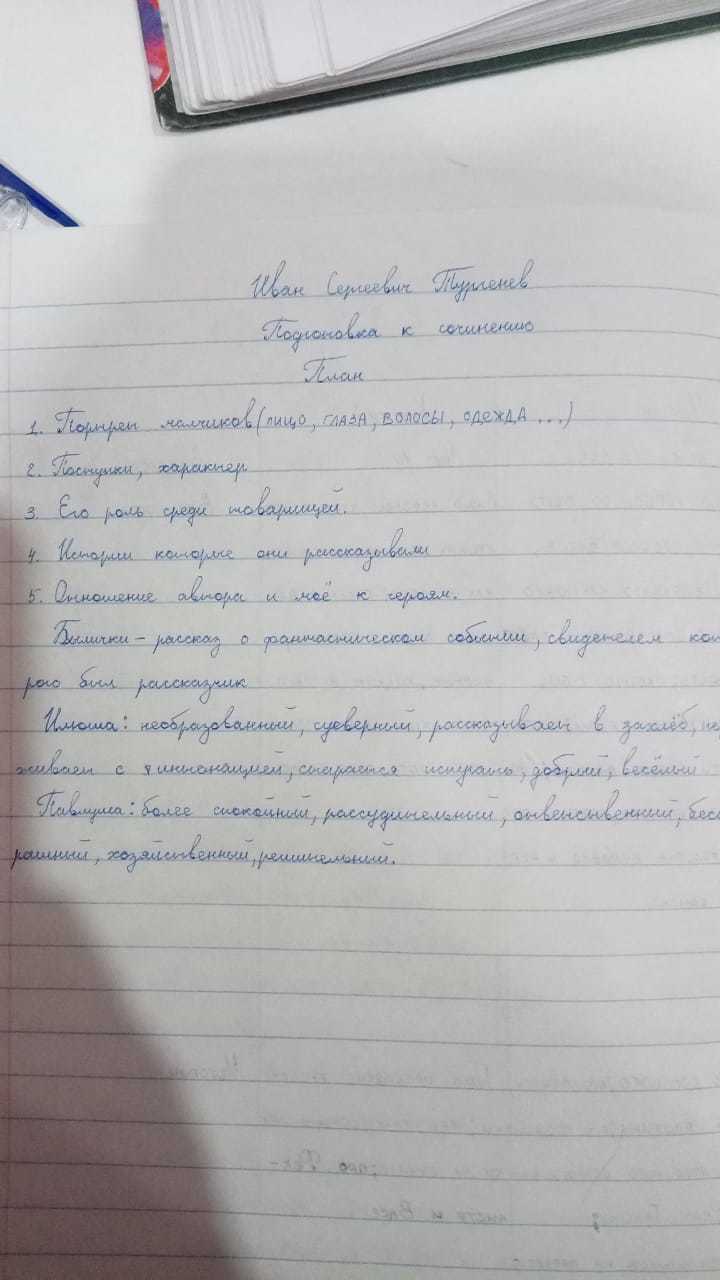 Иван Сергеевич Тургенев
Подготовка к сочинению
План
1. Портрет мальчиков (ЛИЦО, ГЛАЗА, ВОЛОСЫ, ОДЕЖДА ...)
2. Поступки, характер
3. Его роль среди товарищей.
4. Истории которые они рассказывали
5. Отношение автора и моё к героям.
Былички – рассказ о фантастическом событии, свидетелем кот
рого был рассказчик
Илюша: необразованный, суеверный, рассказывает в захлёб, пе
живает с интонацией, старается испугать, добрый, весёлый
Павлуша: более спокойный, рассудительный, ответственный, бес
рашный, хозяйственный, решительный.